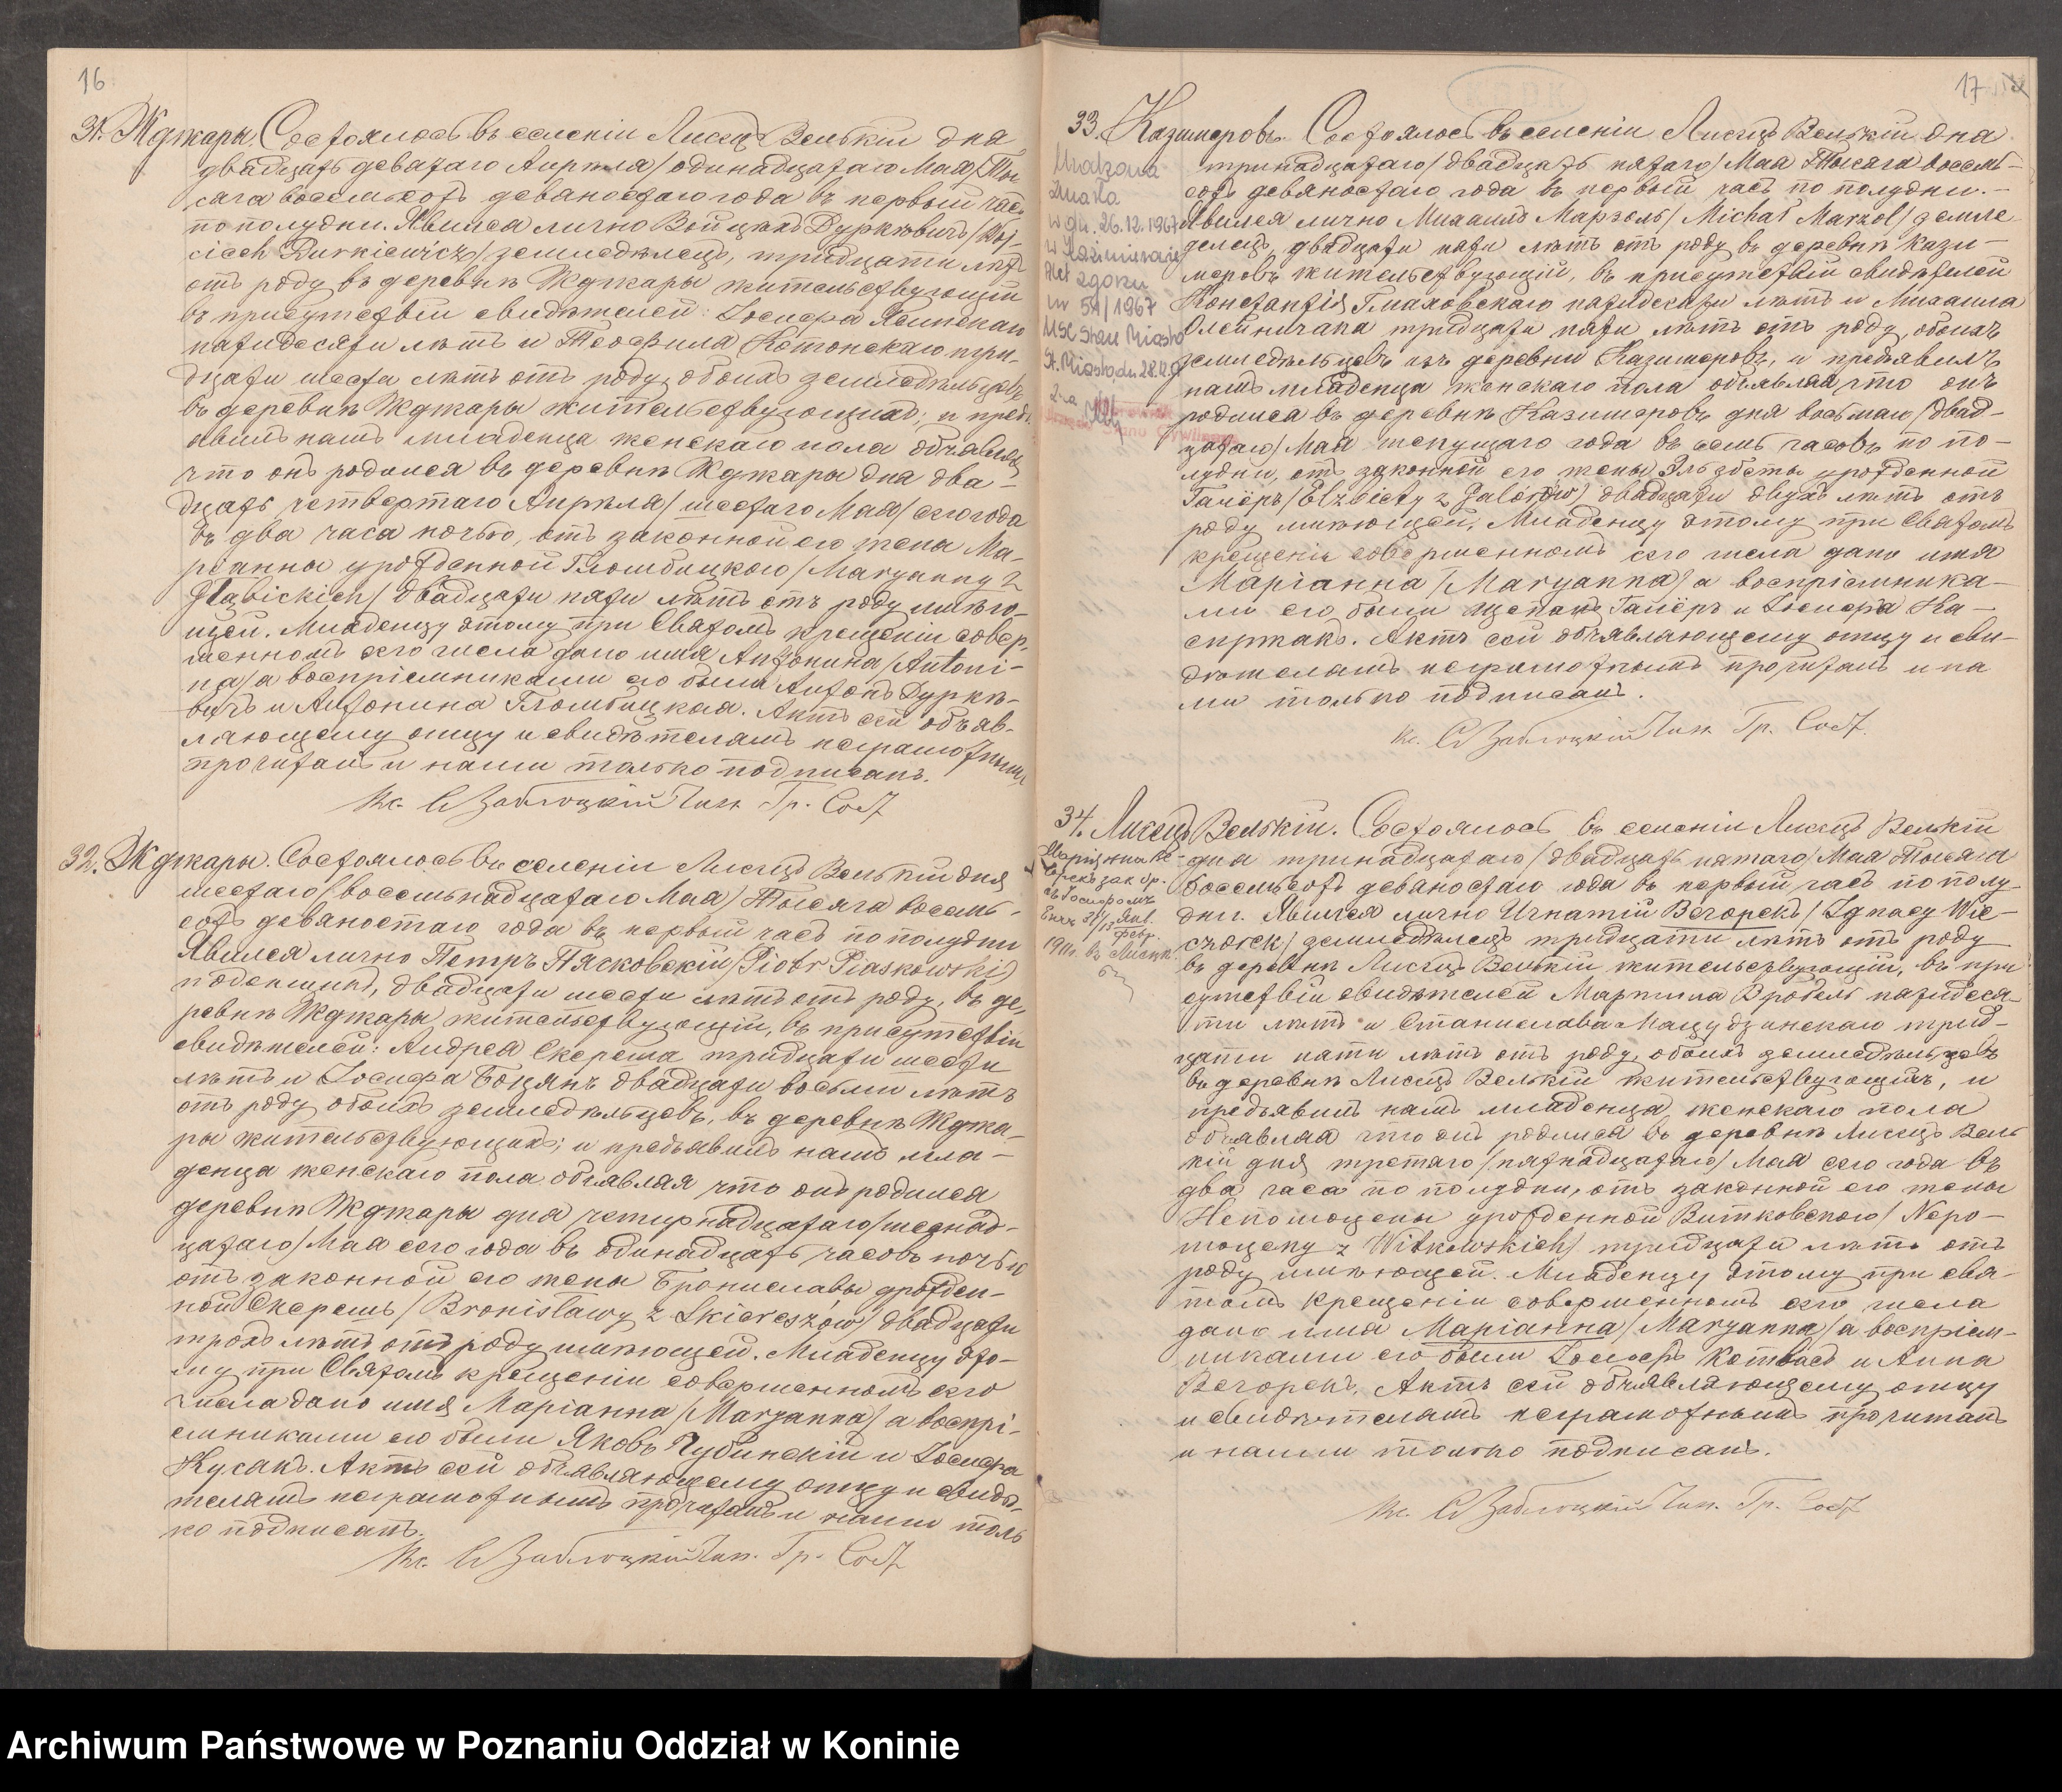 16
31. Жджары. Состоялось въ селеніи Лисецъ Велькій дня
двадцать деватаго Апрѣля /одинадцатаго Мая/ Ты-
сяча восемьсотъ девяностаго года въ первый часъ
по полудни. Явился лично Войцѣхъ Дуркѣвичъ /Woj-
ciech Durkiewicz/ земледѣлецъ, тридцати лѣтъ
отъ роду въ деревнѣ Жджары жительствующій
въ присутствіи свидѣтелей: Іосифа Ясинскаго
пятидесяти лѣтъ и Теофила Котонскаго три-
дцати шести лѣтъ отъ роду, обоихъ земледѣльцовъ
въ деревнѣ Жджары жительствующихъ; и предъ-
явилъ намъ младенца женскаго пола объявляя
что онъ родился въ деревнѣ Жджары дня два-
дцать четвертаго Апрѣля /шестаго Мая/ сего года
въ два часа ночью, отъ законной его жены Ма-
ріанны урожденной Гломбицкихъ /Maryanny z
Głąbickich/ двадцати пяти лѣтъ отъ роду имѣю-
щей. Младенцу этому при Святомъ крещеніи совер-
шенномъ сего числа дано имя Антонина /Antoni-
na/ а воспріемниками его были Антонъ Дуркѣ-
вичъ и Антонина Гломбицкая. Актъ сей объяв-
ляющему отцу и свидѣтелямъ неграмотнымъ
прочитанъ и нами только подписанъ.
Кс. С Заблоцкій Чин. Гр. Сост.
32. Жджары. Состоялось въ селеніи Лисецъ Велькій дня
шестаго /восемьнадцатаго Мая/ Тысяча восемь-
сотъ девяностаго года въ первый часъ по полудни
Явился лично Петръ Пясковскій /Piotr Piaskowski/
поденщикъ, двадцати шести лѣтъ отъ роду, въ де-
ревнѣ Жджары жительствующій, въ присутствіи
свидѣтелей: Андрея Скереша тридцати шести
лѣтъ и Іосифа Боцянъ двадцати восьми лѣтъ
отъ роду обоихъ земледѣльцевъ, въ деревнѣ Жджа-
ры жительствующихъ; и предъявилъ намъ мла-
денца женскаго пола объявляя что онъ родился
деревнѣ Жджары дня четырнадцатаго /шеснад-
цатаго/ Мая сего года въ одинадцать часовъ ночью
отъ законной его жены Брониславы урожден-
ной Скерешъ /Bronisławy z Skiereszów/ двадцати
трохъ лѣтъ отъ роду имѣющей. Младенцу это-
му при Святомъ крещеніи совершенномъ сего
числа дано имя Маріанна /Maryanna/ а воспрі-
емниками его были Яковъ Чубинскій и Іосифа
Кусакъ. Актъ сей объявляющему отцу и свидѣ-
телямъ неграмотнымъ прочитанъ и нами толь
ко подписанъ.
Кс. С Заблоцкій Чин. Гр. Сост.
17
33. Казимеровъ. Состоялось въ селеніи Лисецъ Велькій дня
тринадцатаго /двадцать пятаго/ Мая Тысяча восемь-
сотъ девяностаго года въ первый часъ по полудни.-
Явился лично Михаилъ Марзолъ /Michał Marzol/ земле
делецъ, двадцати пяти лѣтъ отъ роду въ деревнѣ Кази-
меровъ жительствующій, въ присутствіи свидѣтелей
Константія Гмаховскаго пятидесяти лѣтъ и Михаила
Олейничака тридцати пяти лѣтъ отъ роду, обоихъ
земледѣльцевъ изъ деревни Казимеровъ, и предъявилъ
намъ младенца женскаго пола объявляя что онъ
родился въ деревнѣ Казимеровъ дня восьмаго /двад-
цатаго/ Мая текущаго года въ семь часовъ по по-
лудни, отъ законной его жены Эльзбеты урожденной
Галёръ /Elżbiety z Galórów/ двадцати двухъ лѣтъ отъ
роду имѣющей. Младенцу этому при Святомъ
крещеніи совершенномъ сего числа дано имя
Маріанна /Maryanna/ а воспріемника-
ми его были Щепанъ Галёръ и Іосифа Ка-
спржакъ. Актъ сей объявляющему отцу и сви-
дѣтелямъ неграмотнымъ прочитанъ и на
ми только подписанъ.
Кс. С Заблоцкій Чин. Гр. Сост.
Marzona
zmarła
w dn. 26.12.1967
w Kazimierzie
Akt zgonu
nr 54/1967
USC Stare Miasto
St. Miasto dn 28.12.67
34. Лисецъ Велькій. Состоялось въ селеніи Лисецъ Велькій
дня тринадцатаго /двадцать пятаго/ Мая Тысяча
восемьсотъ девяностаго года въ первый часъ по полу-
дни. Явился лично Игнатій Вечорекъ /Ignacy Wie-
czorek/ земледѣлецъ тридцати лѣтъ отъ роду
въ деревнѣ Лисецъ Велькій жительствующій, въ при
сутствіи свидѣтелей Мартина Вробель пятидеся-
ти лѣтъ и Станислава Мацудзинскаго трид-
цати пяти лѣтъ отъ роду, обоихъ земледѣльцевъ
въ деревнѣ Лисецъ Велькій жительствующихъ, и
предъявилъ намъ младенца женскаго пола
объявляя что онъ родился въ деревнѣ Лисецъ Вель
кій дня третаго /пятнадцатаго/ Мая сего года въ
два часа по полудни, отъ законной его жены
Непомоцены урожденной Витковскихъ /Nepo-
moceny z Witkowskich/ тридцати лѣтъ отъ
роду имѣющей. Младенцу этому при свя-
томъ крещеніи совершенномъ сего числа
дано имя Маріанна /Maryanna/ а воспріем-
никами его были Іосифъ Котвасъ и Анна
Вечорекъ. Актъ сей объявляющему отцу
и свидѣтелямъ неграмотнымъ прочитанъ
и нами только подписанъ.
Кс. С Заблоцкій Чин. Гр. Сост.
Archiwum Państwowe w Poznaniu Oddział w Koninie